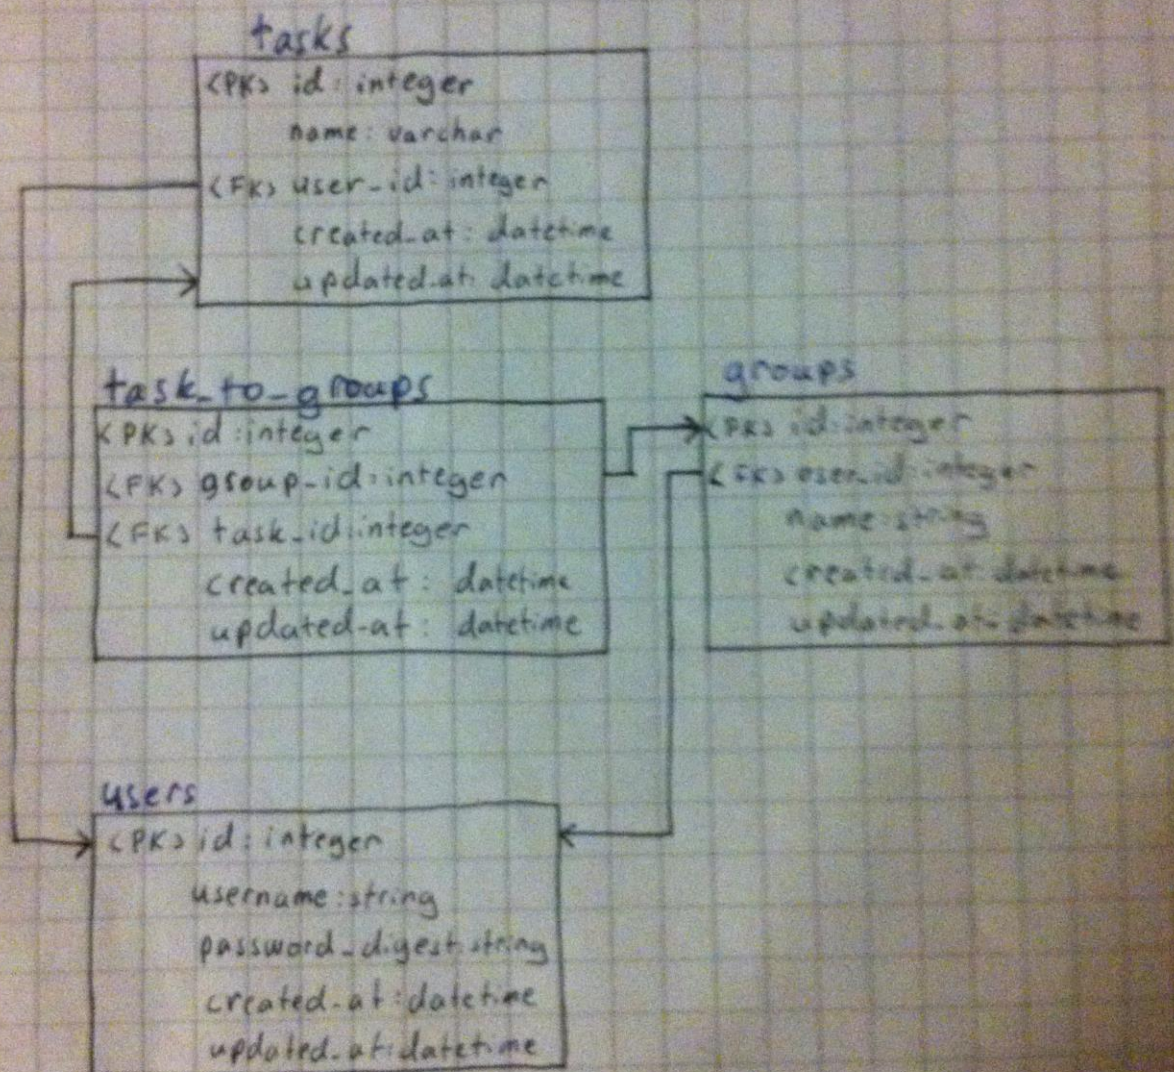 tasks
<PK> id: integer
name: varchar
<FK> user_id: integer
created_at: datetime
updated_at: datetime
task_to_groups
<PK> id:integer
<FK> group_id:integer
<FK> task_id:integer
created_at: datetime
updated_at: datetime
groups
<PK> id:integer
<FK> user_id:integer
name:string
created_at:datetime
updated_at:datetime
users
<PK> id: integer
username:string
password_digest:string
created_at:datetime
updated_at:datetime